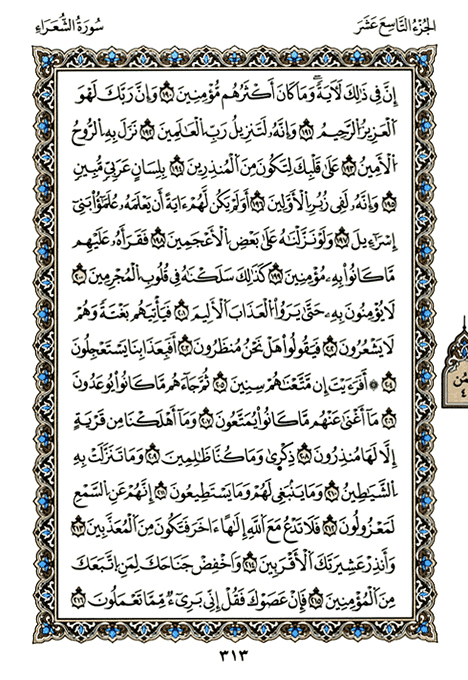 الجُزْءُ التَّاسِعَ عَشَرَ
سُورَةُ الشُّعَرَاءِ
إِنَّ فِي ذَٰلِكَ لَآيَةً ۖ وَمَا كَانَ أَكْثَرُهُم مُّؤْمِنِينَ ١٩٠ وَإِنَّ رَبَّكَ لَهُوَ
الْعَزِيزُ الرَّحِيمُ ١٩١ وَإِنَّهُ لَتَنزِيلُ رَبِّ الْعَالَمِينَ ١٩٢ نَزَلَ بِهِ الرُّوحُ
الْأَمِينُ ١٩٣ عَلَىٰ قَلْبِكَ لِتَكُونَ مِنَ الْمُنذِرِينَ ١٩٤ بِلِسَانٍ عَرَبِيٍّ مُّبِينٍ
١٩٥ وَإِنَّهُ لَفِي زُبُرِ الْأَوَّلِينَ ١٩٦ أَوَلَمْ يَكُن لَّهُمْ ءَايَةً أَن يَعْلَمَهُ عُلَمَٰٓؤُا۟ بَنِي
إِسْرَٰٓءِيلَ ١٩٧ وَلَوْ نَزَّلْنَاهُ عَلَىٰ بَعْضِ الْأَعْجَمِينَ ١٩٨ فَقَرَأَهُ عَلَيْهِم
مَّا كَانُوا بِهِ مُؤْمِنِينَ ١٩٩ كَذَٰلِكَ سَلَكْنَاهُ فِي قُلُوبِ الْمُجْرِمِينَ ٢٠٠
لَا يُؤْمِنُونَ بِهِ حَتَّىٰ يَرَوُا الْعَذَابَ الْأَلِيمَ ٢٠١ فَيَأْتِيَهُم بَغْتَةً وَهُمْ
لَا يَشْعُرُونَ ٢٠٢ فَيَقُولُوا هَلْ نَحْنُ مُنظَرُونَ ٢٠٣ أَفَبِعَذَابِنَا يَسْتَعْجِلُونَ
٢٠٤ ۞ أَفَرَءَيْتَ إِن مَّتَّعْنَاهُمْ سِنِينَ ٢٠٥ ثُمَّ جَاءَهُم مَّا كَانُوا يُوعَدُونَ
٢٠٦ مَا أَغْنَىٰ عَنْهُم مَّا كَانُوا يُمَتَّعُونَ ٢٠٧ وَمَا أَهْلَكْنَا مِن قَرْيَةٍ
إِلَّا لَهَا مُنذِرُونَ ٢٠٨ ذِكْرَىٰ وَمَا كُنَّا ظَالِمِينَ ٢٠٩ وَمَا تَنَزَّلَتْ بِهِ
الشَّيَاطِينُ ٢١٠ وَمَا يَنبَغِي لَهُمْ وَمَا يَسْتَطِيعُونَ ٢١١ إِنَّهُمْ عَنِ السَّمْعِ
لَمَعْزُولُونَ ٢١٢ فَلَا تَدْعُ مَعَ اللَّهِ إِلَٰهًا ءَاخَرَ فَتَكُونَ مِنَ الْمُعَذَّبِينَ ٢١٣
وَأَنذِرْ عَشِيرَتَكَ الْأَقْرَبِينَ ٢١٤ وَاخْفِضْ جَنَاحَكَ لِمَنِ اتَّبَعَكَ
مِنَ الْمُؤْمِنِينَ ٢١٥ فَإِنْ عَصَوْكَ فَقُلْ إِنِّي بَرِيءٌ مِّمَّا تَعْمَلُونَ ٢١٦
٣١٣